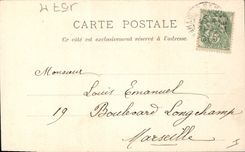 CARTE POSTALE
Ce côté est exclusivement réservé à l'adresse.
Monsieur
Louis Emanuel
19 Boulevard Longchamp
Marseille